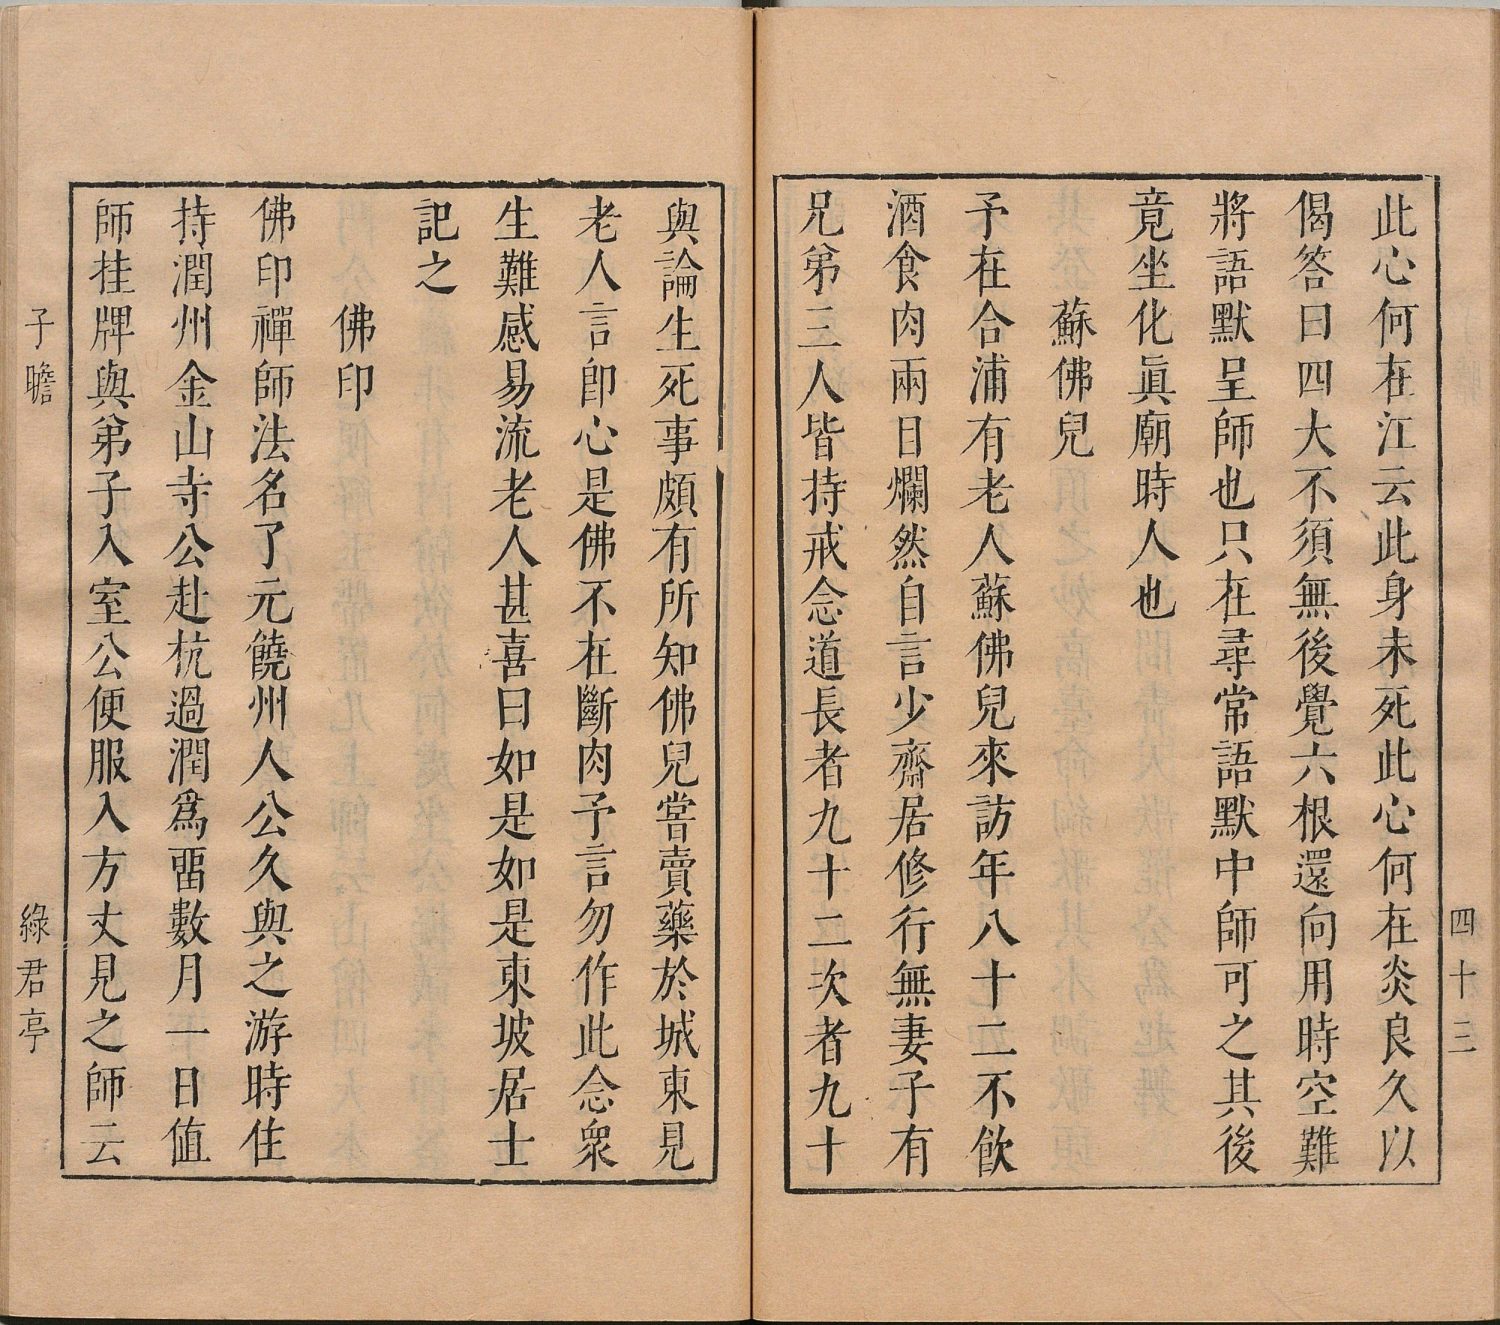 此心何在江云此身未死此心何在炎良久以
偈答曰四大不須無後覺六根還向用時空難
將語默呈師也只在尋常語默中師可之其後
竟坐化眞廟時人也
蘇佛兒
予在合浦有老人蘇佛兒來訪年八十二不飲
酒食肉兩目爛然自言少齋居修行無妻子有
兄弟三人皆持戒念道長者九十二次者九十
四十三
與論生死事頗有所知佛兒嘗賣藥於城東見
老人言卽心是佛不在斷肉予言勿作此念衆
生難感易流老人甚喜曰如是如是東坡居士
記之
佛印
佛印禪師法名了元饒州人公久與之游時住
持潤州金山寺公赴杭過潤爲畱數月一日值
師挂牌與弟子入室公便服入方丈見之師云
子瞻
綠君亭